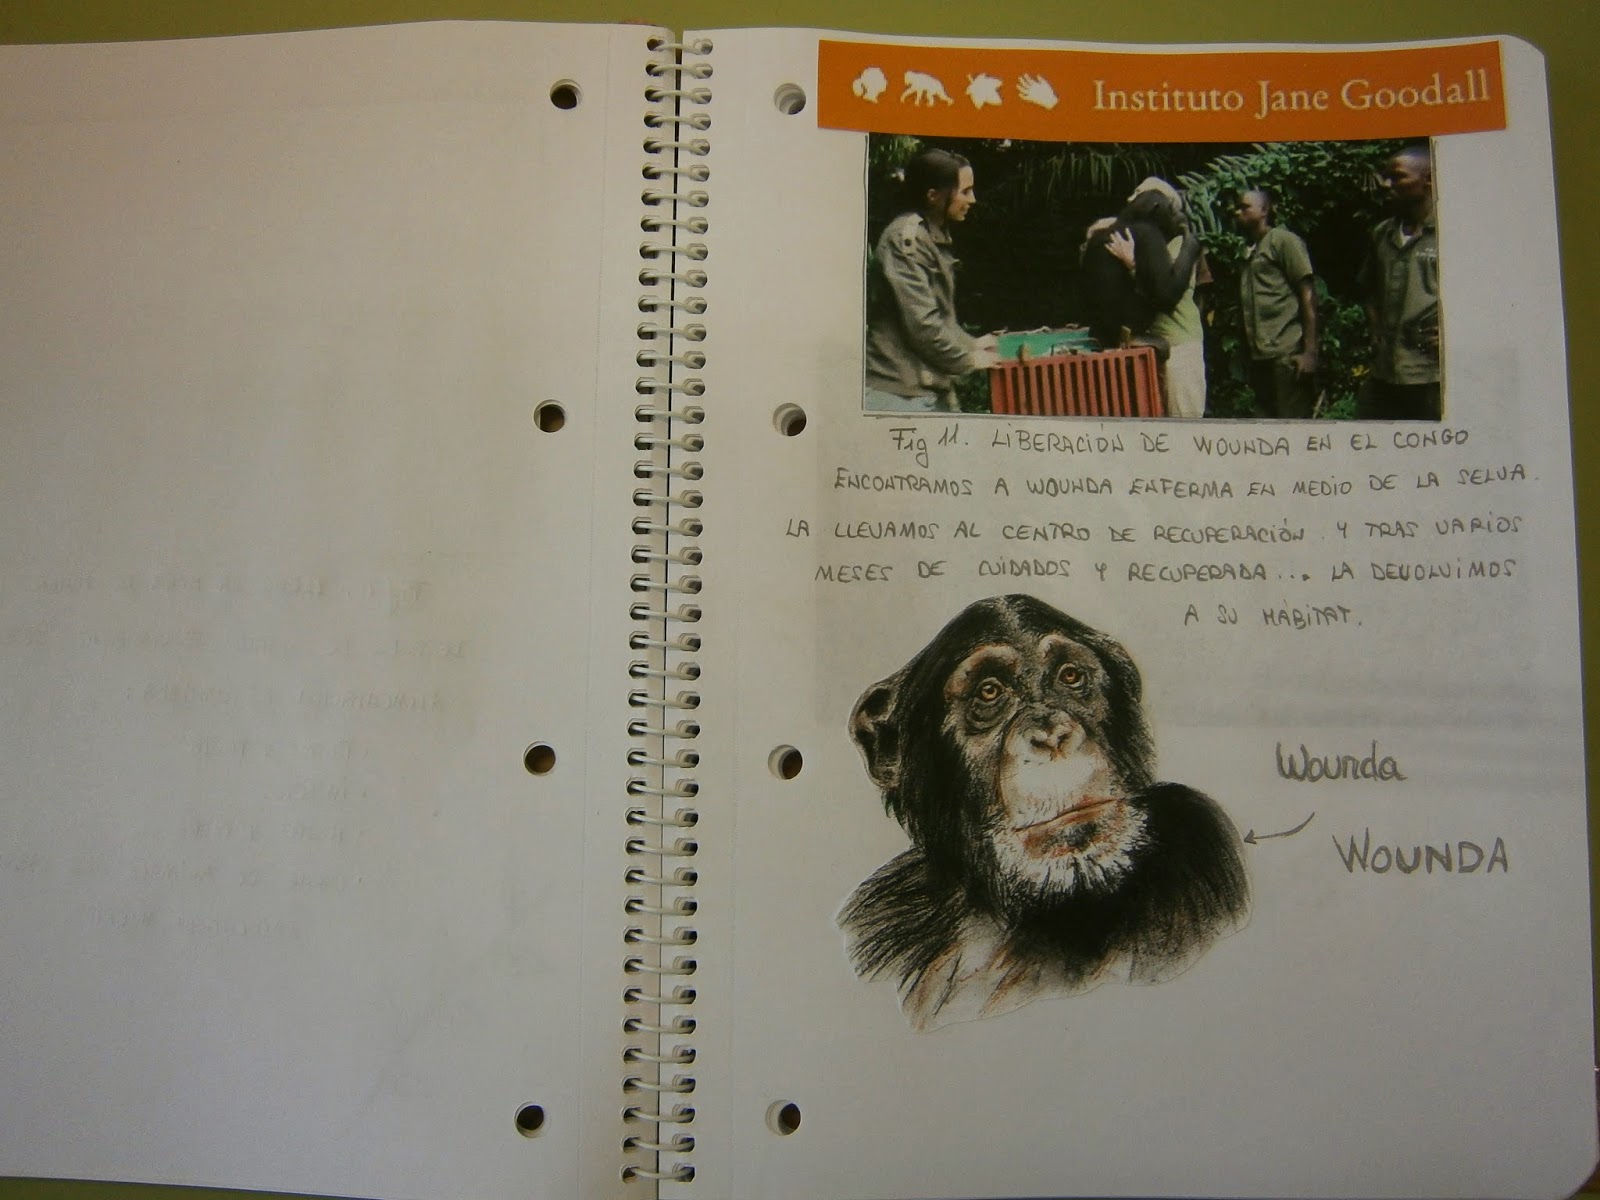 Instituto Jane Goodall
Fig 11. LIBERACIÓN DE WOUNDA EN EL CONGO
ENCONTRAMOS A WOUNDA ENFERMA EN MEDIO DE LA SELVA.
LA LLEVAMOS AL CENTRO DE RECUPERACIÓN. Y TRAS VARIOS
MESES DE CUIDADOS Y RECUPERADA... LA DEVOLVIMOS
A SU HÁBITAT.
Wounda
WOUNDA